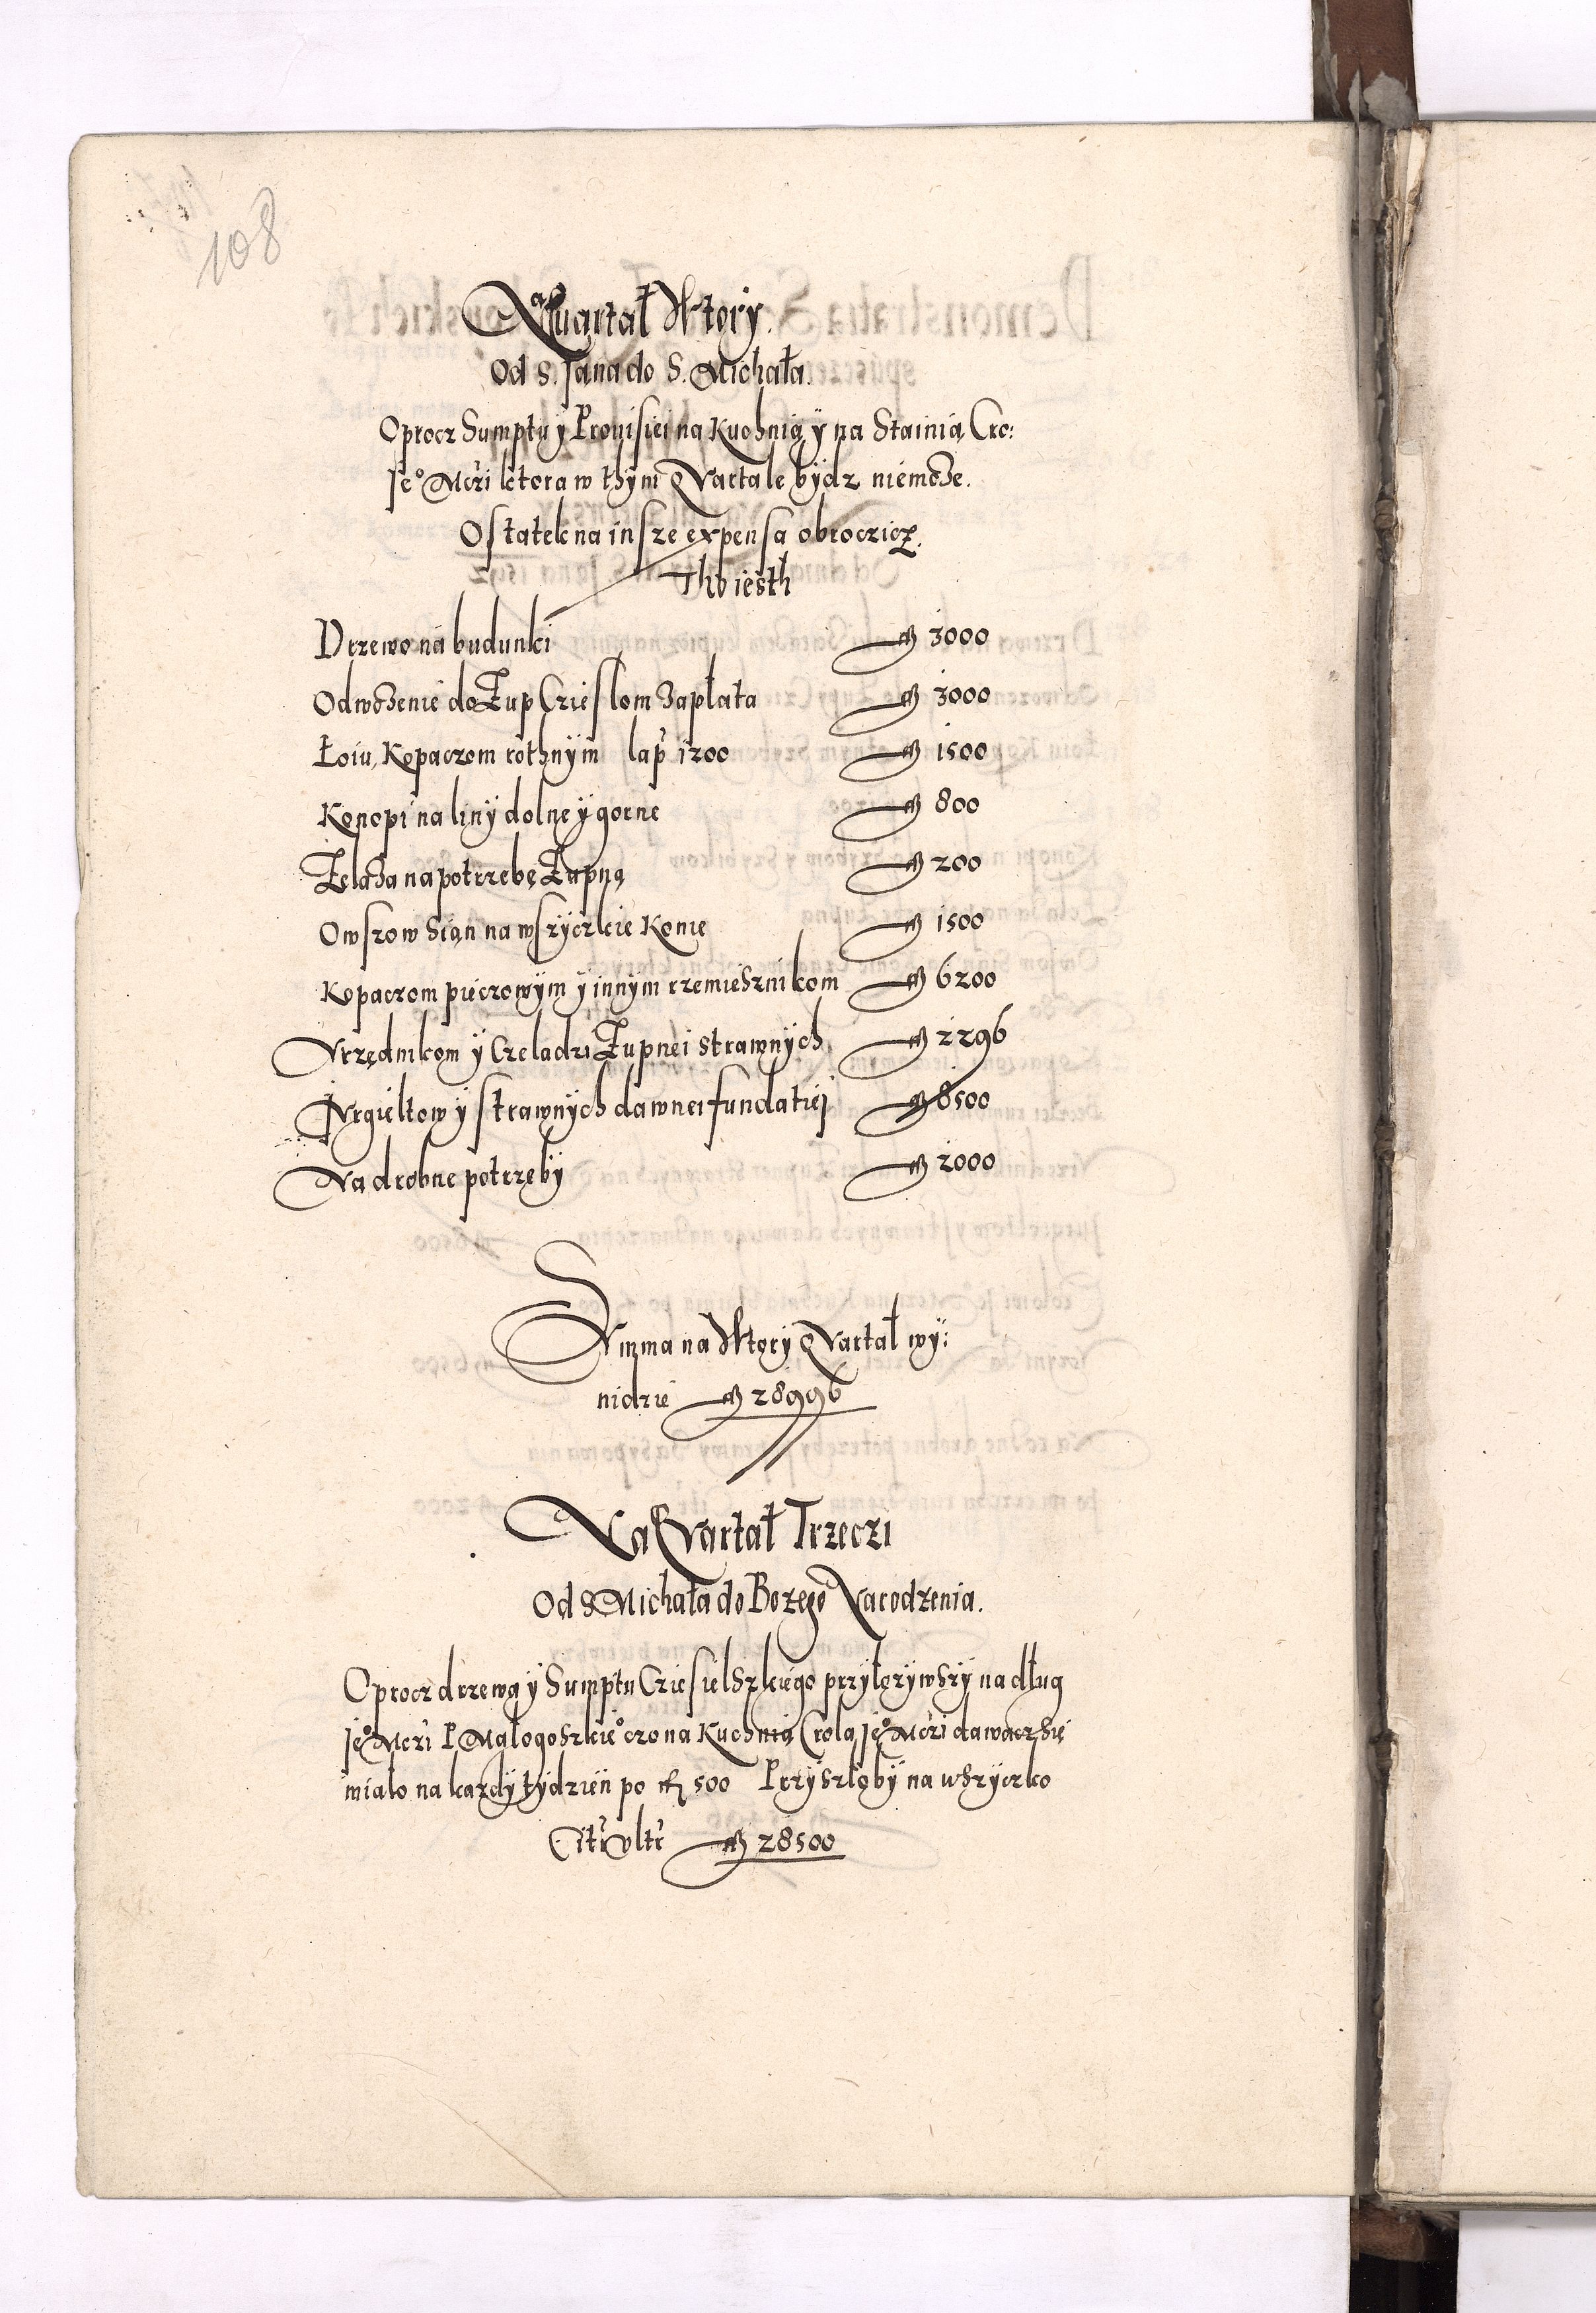 108
Na Quartał Wtory.
Od S. Jana do S. Michała.
Oprocz Sumptu y Prouisiei na Kuchnią y na Stainią Cro:
Je° Mczi ktora w thym Qvartale bydz niemoże.
Ostatek na insze expensa obroczicz.
Tho iesth
Drzewo na budunki 3000
Odwożenie do Żup Czieslom Zapłata 3000
Łoiu, Kopaczom rothnym łap 1200 1500
Konopi na liny dolne y gorne 800
Żelaza na potrzebę Żupną 200
Owszow Sian na wszyczkie Konie 1500
Kopaczom pieczowym y innym rzemiesznikom 6200
Vrzędnikom y Czeladzi Żupnei strawnych 2296
Jvrgieltow y strawnych dawnei fundatiej 8500
Na drobne potrzeby 2000
Svmma na Wtory Qvartał wy:
nidzie 28996
Na Qvartał Trzeczi
Od S Michała do Bozego Narodzenia.
Oprocz drzewa y Sumptu Cziesielszkiego przyłozywszy na dług
Je° Mczi P Małogoszkie° czo na Kuchnią Crola Je° Mczi dawacz się
miało na kazdy tydzień po fl 500 Przyszłoby na wszyczko
Citr Vltr 28500